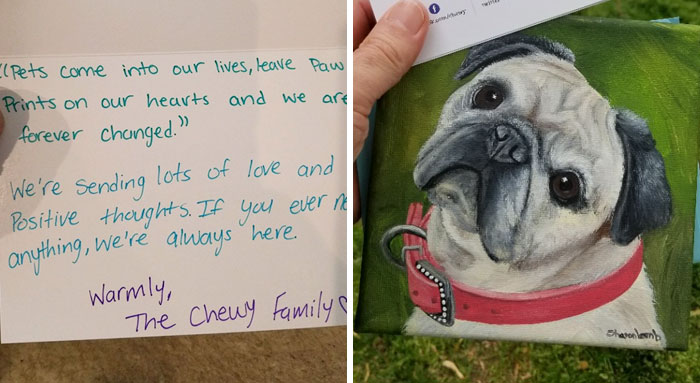 “Pets come into our lives, leave Paw
Prints on our hearts and we are
forever changed.”
We're Sending lots of love and
Positive thoughts. If you ever
anything, we're always here.
Warmly,
The Chewy Family